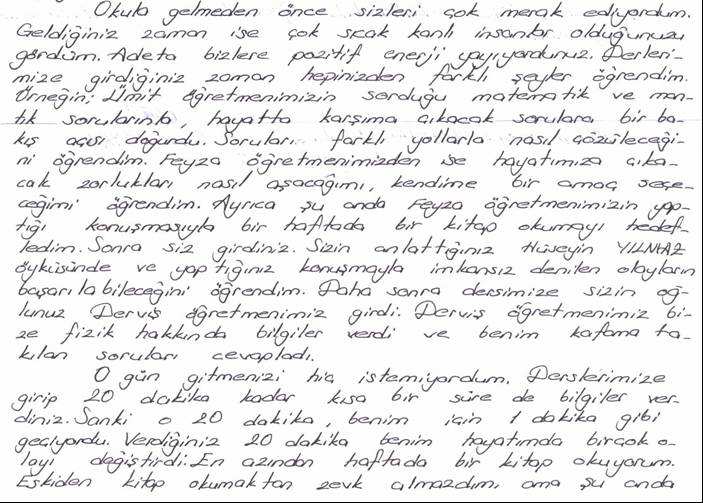 Okula gelmeden önce sizleri çok merak ediyordum.
Geldiğiniz zaman ise çok sıcak kanlı insanlar olduğunuzu
gördüm. Adeta bizlere pozitif enerji yayıyordunuz. Dersleri-
mize girdiğiniz zaman hepinizden farklı şeyler öğrendim.
Örneğin; Ümit öğretmenimizin sorduğu matematik ve man-
tık sorularınla, hayatta karşıma çıkacak sorulara bir ba-
kış açısı doğurdu. Soruları farklı yollarla nasıl çözüleceği-
ni öğrendim. Feyza öğretmenimizden ise hayatımıza çıka-
cak zorlukları nasıl aşacağımı, kendime bir amaç seçe-
ceğimi öğrendim. Ayrıca şu anda Feyza öğretmenimizin yap-
tığı konuşmasıyla bir haftada bir kitap okumayı hedef-
ledim. Sonra siz girdiniz. Sizin anlattığınız Hüseyin YILMAZ
öyküsünde ve yaptığınız konuşmayla imkansız denilen olayların
başarılabileceğini öğrendim. Daha sonra dersimize sizin oğ-
lunuz Derviş öğretmenimiz girdi. Derviş öğretmenimiz bi-
ze fizik hakkında bilgiler verdi ve benim kafama ta-
kılan soruları cevapladı.
O gün gitmenizi hiç istemiyordum. Derslerimize
girip 20 dakika kadar kısa bir süre de bilgiler ver-
diniz. Sanki o 20 dakika, benim için 1 dakika gibi
geçiyordu. Verdiğiniz 20 dakika benim hayatımda birçok o-
layı değiştirdi. En azından haftada bir kitap okuyorum.
Eskiden kitap okumaktan zevk almazdım, ama şu anda